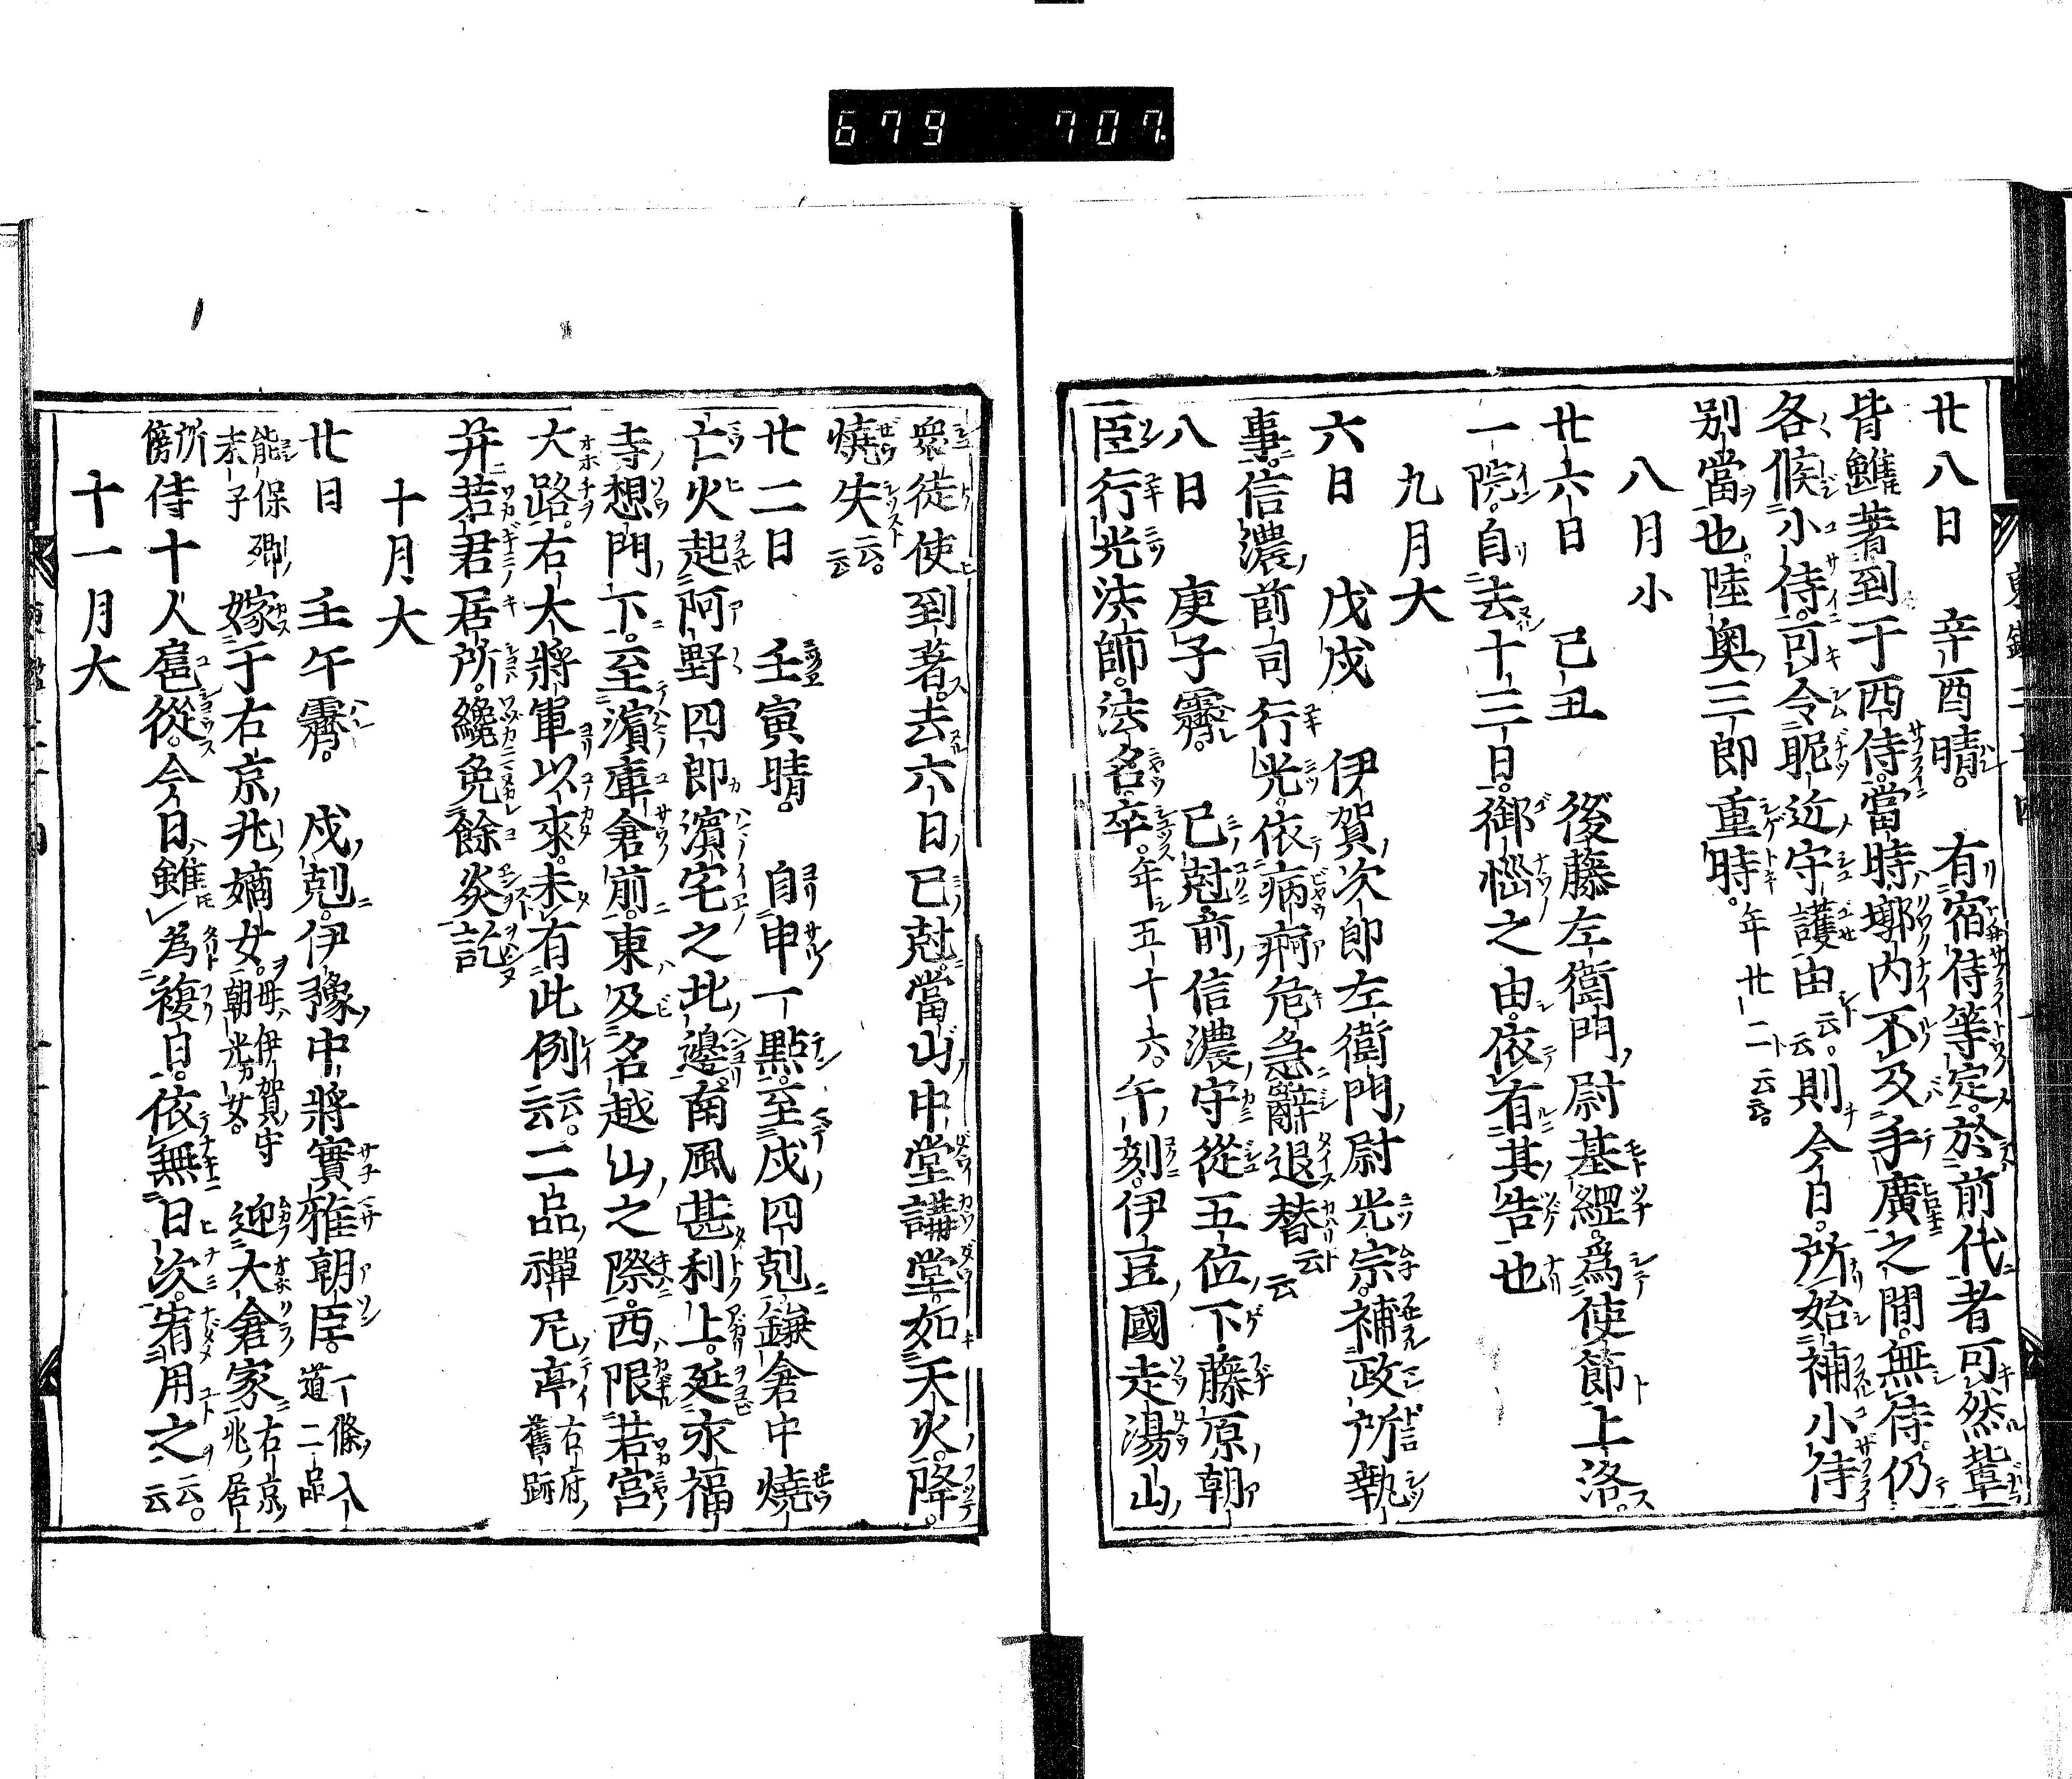 679 707.
廿八日 辛酉晴。有宿侍等定。於前代者可然輩
皆雖著到于西侍。當時墎内不及手廣之間。無侍。仍
各候小侍。可令眤近守護由云云。則今日。所始補小侍
別當也。陸奥三郎重時。年廿二云云。
八月小
廿六日 己丑 後藤左衛門尉基綱。爲使節上洛。
一院。自去十三日。御惱之由。依有其告也
九月大
六日 戊戌 伊賀次郎左衛門尉光宗。補政所執
事。信濃前司行光。依病痾危急辭退替云云
八日 庚子霽。 已尅前信濃守從五位下藤原朝
臣行光法師。法名。卒。年五十六。午刻。伊豆國走湯山
衆徒使到著。去六日已尅。當山中堂講堂。如天火。降。
燒失云云。
廿二日 壬寅晴。 自申一點。至戌四剋。鎌倉中燒
亡火起阿野四郎濱宅之北邊。南風甚利上。延永福
寺想門下。至濱庫倉前。東及名越山之際。西限若宮
大路。右大將軍以來。未有此例云云。二品禪尼亭右府舊跡
并若君居所。纔免餘炎訖
十月大
廿日 壬午霽。 戌剋。伊豫中將實雅朝臣。一條入道二品
能保卿末子 嫁于右京兆嫡女。母伊賀守朝光女。 迎大倉家右京兆居
所傍侍十人扈從。今日雖爲複日。依無日次。宥用之云云。
十一月大